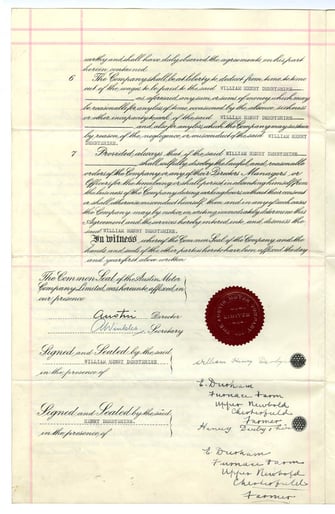 earthy and shall have duly observed the agreements on his part
herein contained.
6 The Company shall be at liberty to deduct from time to time
out of the wages to be paid to the said WILLIAM HENRY DERBYSHIRE
as aforesaid any sum or sums of money which may
be reasonable for any loss of time occasioned by the absence, sickness
or other incapacity to work of the said WILLIAM HENRY DERBYSHIRE
and also for any loss which the Company may sustain
by reason of the negligence, or misconduct of the said WILLIAM HENRY
DERBYSHIRE.
7 Provided always that if the said WILLIAM HENRY DERBYSHIRE
shall wilfully disobey the lawful and reasonable
orders of the Company or any of their Directors Managers or
Officers for the time being or shall persist in absenting himself from
the business of the Company during working hours without their consent
or shall otherwise misconduct himself then and in any of such cases
the Company may by notice in writing immediately determine this
Agreement and the service hereby entered into, and dismiss the
said WILLIAM HENRY DERBYSHIRE.
In witness whereof the Common Seal of the Company and the
hands and seals of the other parties hereto have been affixed the day
and year first above written
The Common Seal of the Austin Motor
Company Limited, was hereunto affixed in
our presence
Austin Director
Secretary
Signed and Sealed by the said
WILLIAM HENRY DERBYSHIRE
in the presence of
William Henry Derbyshire
E. Durham
Furnace Farm
Upper Newbold
Chesterfield
Farmer
Signed and Sealed by the said
HENRY DERBYSHIRE.
in the presence of
Henry Derbyshire
E. Durham
Furnace Farm
Upper Newbold
Chesterfield
Farmer